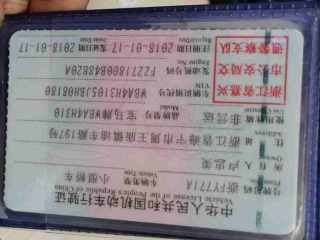 中华人民共和国机动车行驶证
Vehicle License of the People's Republic of China
浙FY771A
车辆类型 小型轿车
Vehicle Type
所有人 卢忠英
Owner
住址 浙江省海宁市周王庙镇油车路197号
Address
使用性质 非营运
Use Character
品牌型号 宝马牌WBA4H310
Model
浙江省嘉兴
市公安局交
通警察支队
车辆识别代号
VIN
发动机号码 F2271800B48B20A
Engine No.
注册日期 2018-01-17
Register Date
发证日期 2018-01-17
Issue Date